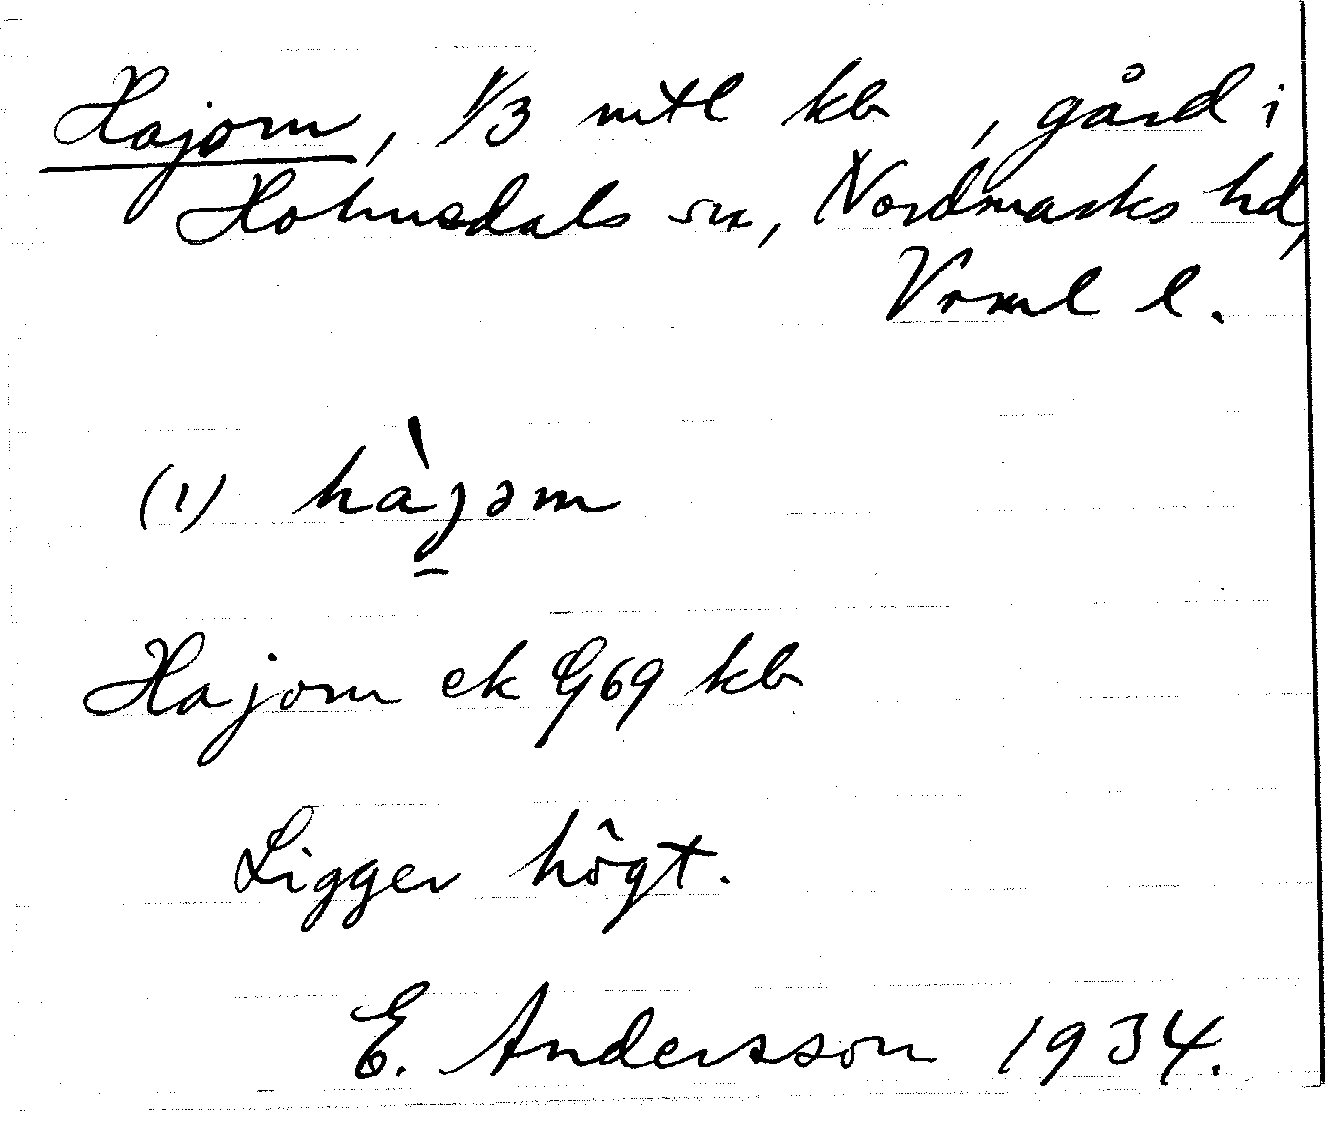 Hajom, 1/3 mtl kb, gård i
Holmedals sn, Nordmarks hd,
Vrml l.
(1) hàjəm
Hajom ek G69 kb
Ligger högt.
E. Andersson 1934.